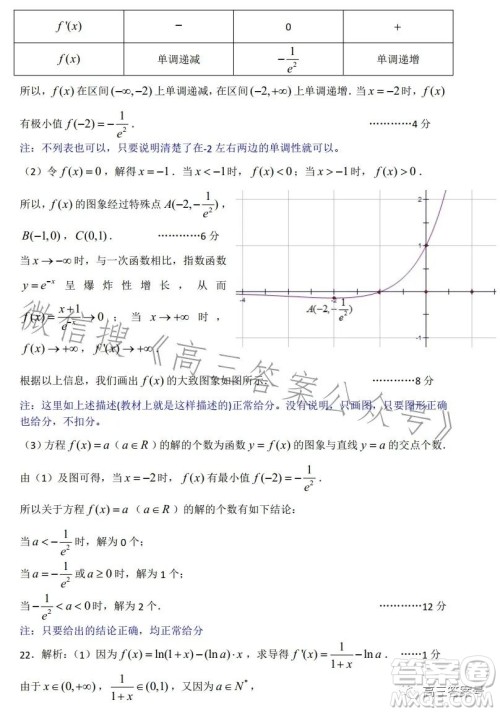 f '(x) − 0 +
f(x) 单调递减 −1/e² 单调递增
所以，f(x)在区间(−∞,−2)上单调递减，在区间(−2,+∞)上单调递增．当x=−2时，f(x)
有极小值f(−2)=−1/e²． …………4 分
注：不列表也可以，只要说明清楚了在-2 左右两边的单调性就可以。
（2）令f(x)=0，解得x=−1．当x<−1时，f(x)<0；当x>−1时，f(x)>0．
所以，f(x)的图象经过特殊点A(−2,−1/e²)，
B(−1,0)，C(0,1)． …………6 分
当x→−∞时，与一次函数相比，指数函数
y=e^{−x}呈爆炸性增长，从而
f(x)=(x+1)/e^{−x}→0；当x→+∞时，
f(x)→+∞，f'(x)→+∞．
2
1
-4
-1
A(-2,-1/e²)
根据以上信息，我们画出f(x)的大致图象如图所示． …………8 分
注：这里如上述描述(教材上就是这样描述的)正常给分。没有说明，只画图，只要图形正确
也给分，不扣分。
（3）方程f(x)=a（a∈R）的解的个数为函数y=f(x)的图象与直线y=a的交点个数．
由（1）及图可得，当x=−2时，f(x)有最小值f(−2)=−1/e²．
所以关于方程f(x)=a（a∈R）的解的个数有如下结论：
当a<−1/e²时，解为 0 个；
当a=−1/e²或a≥0时，解为 1 个；
当−1/e²<a<0时，解为 2 个． …………12 分
注：只要给出的结论正确，均正常给分
22．解析：（1）因为f(x)=ln(1+x)−(ln a)·x，求导得f'(x)=1/(1+x)−ln a． ……1 分
由于x∈(0,+∞)，1/(1+x)∈(0,1)，又因为a∈N*，
微信搜《高三答案公众号》
高三答案号
答案圈